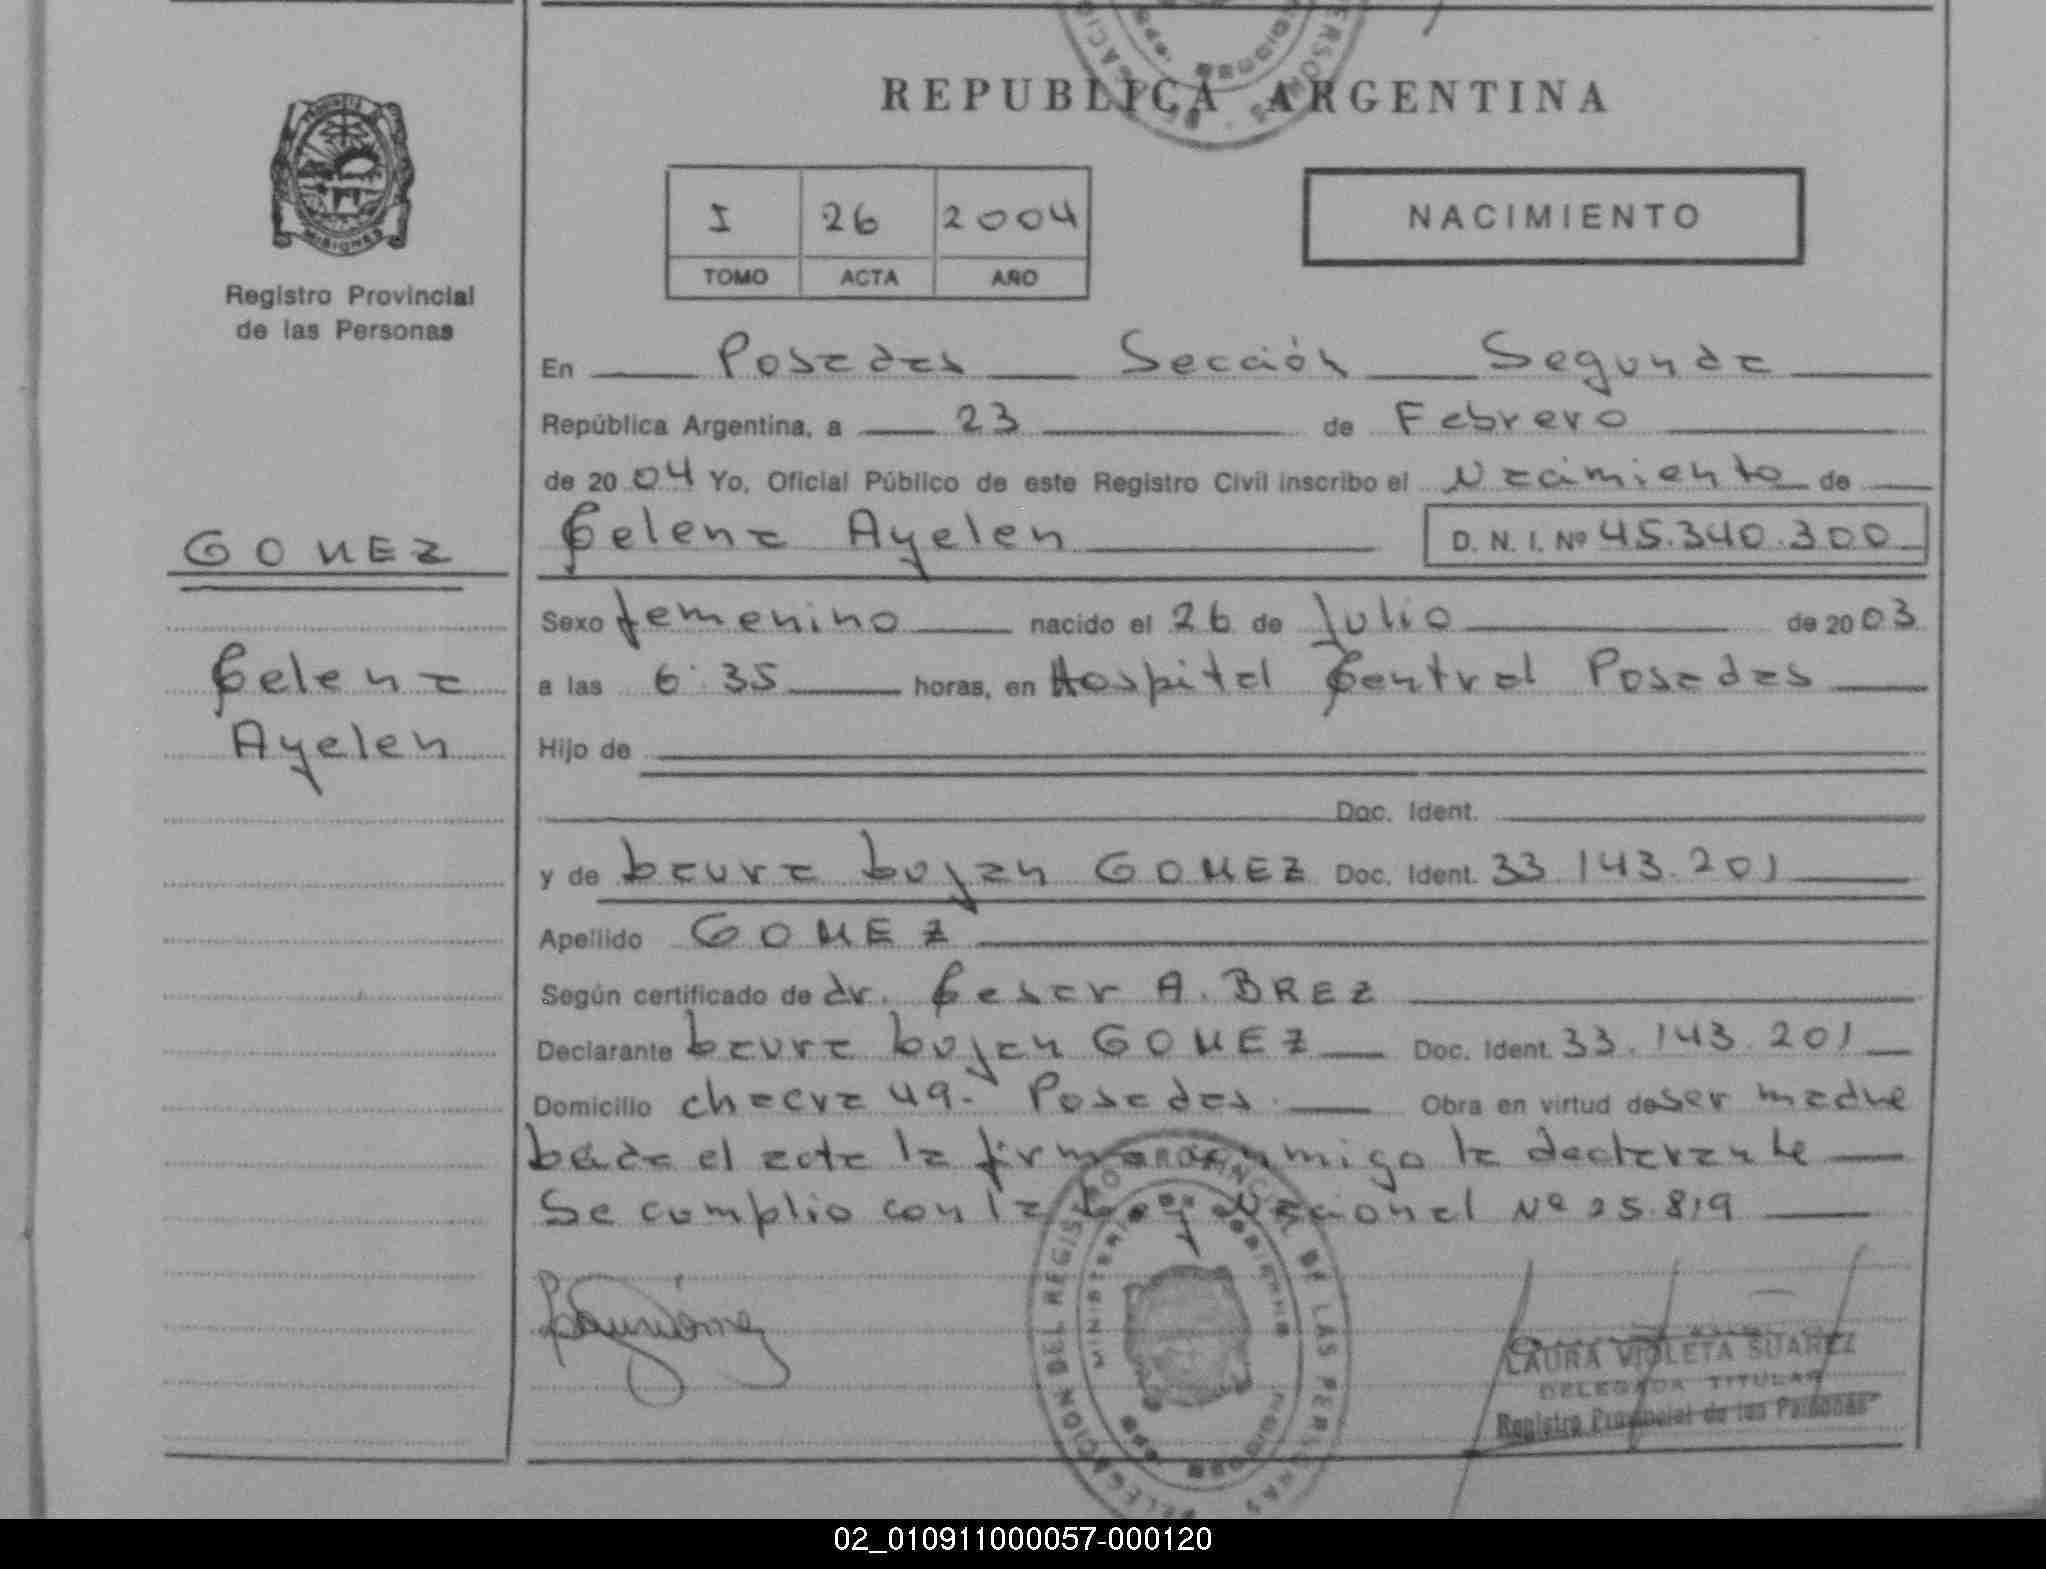 REPUBLICA ARGENTINA
I 26 2004
TOMO ACTA AÑO
NACIMIENTO
MISIONES
Registro Provincial
de las Personas
En Posadas Sección Segunda
República Argentina, a 23 de Febrero
de 2004 Yo, Oficial Público de este Registro Civil inscribo el Nacimiento de
GOMEZ
Celena Ayelen D. N. I. Nº 45.340.300
Sexo femenino nacido el 26 de Julio de 2003
Celena
Ayelen
a las 6:35 horas, en Hospital Central Posadas
Hijo de
Doc. Ident.
y de Laura Lujan GOMEZ Doc. Ident. 33.143.201
Apellido GOMEZ
Según certificado de dr. Cesar A. BREZ
Declarante Laura Lujan GOMEZ Doc. Ident. 33.143.201
Domicilio chacra 49. Posadas. Obra en virtud de ser madre
Leida el acta la firma conmigo la declarante
Se cumplio con la Ley Nacional Nº 25.819
DELEGACION DEL REGISTRO PROVINCIAL DE LAS PERSONAS
MINISTERIO DE GOBIERNO
LAURA VIOLETA SUAREZ
DELEGADA TITULAR
Registro Provincial de las Personas
02_010911000057-000120